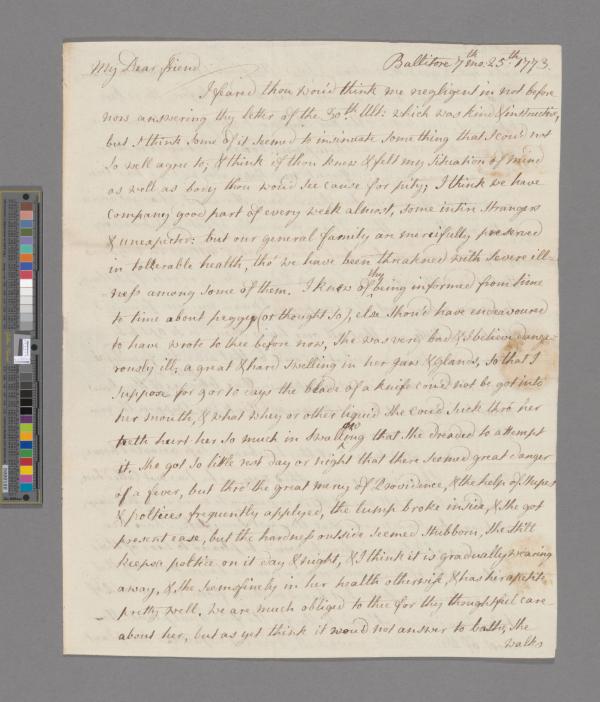 My Dear friend
Ballitore 7th mo: 25th: 1773
I feared thou would think me negligent in not before
now answering thy letter of the 30th Ult: which was kind & instructive,
but I think some of it seemed to insinuate something that I could not
so well agree to; & think if thou knew & felt my situation of mind
as well as body thou would see cause for pity; I think we have
company good part of every week almost, some intire strangers
& unexpected: but our general family are mercifully preserved
in tollerable health, tho' we have been threatned with severe ill-
ness among some of them. I knew of thy being informed from time
to time about peggy (or thought so), else should have endeavoured
to have wrote to thee before now, she was very bad & I believe dange-
rously ill; a great & hard swelling in her jaw & glands, so that I
suppose for 9 or 10 days the blade of a knife could not be got into
her mouth, & what whey or other liquid she could suck thro' her
teeth hurt her so much in swallowing that she dreaded to attempt
it. she got so little rest day or night that there seemed great danger
of a fever, but thro' the great mercy of Providence, & the help of stupes
& poltices frequently applyed, the lump broke inside, & she got
present ease, but the hardness outside seemed stubborn, she still
keeps a poltice on it day & night, & I think it is gradually wearing
away, & she seems finely in her health otherwise, & has her apetite
pretty well. we are much obliged to thee for thy thoughtful care
about her, but as yet think it would not answer to bathe, she
walks